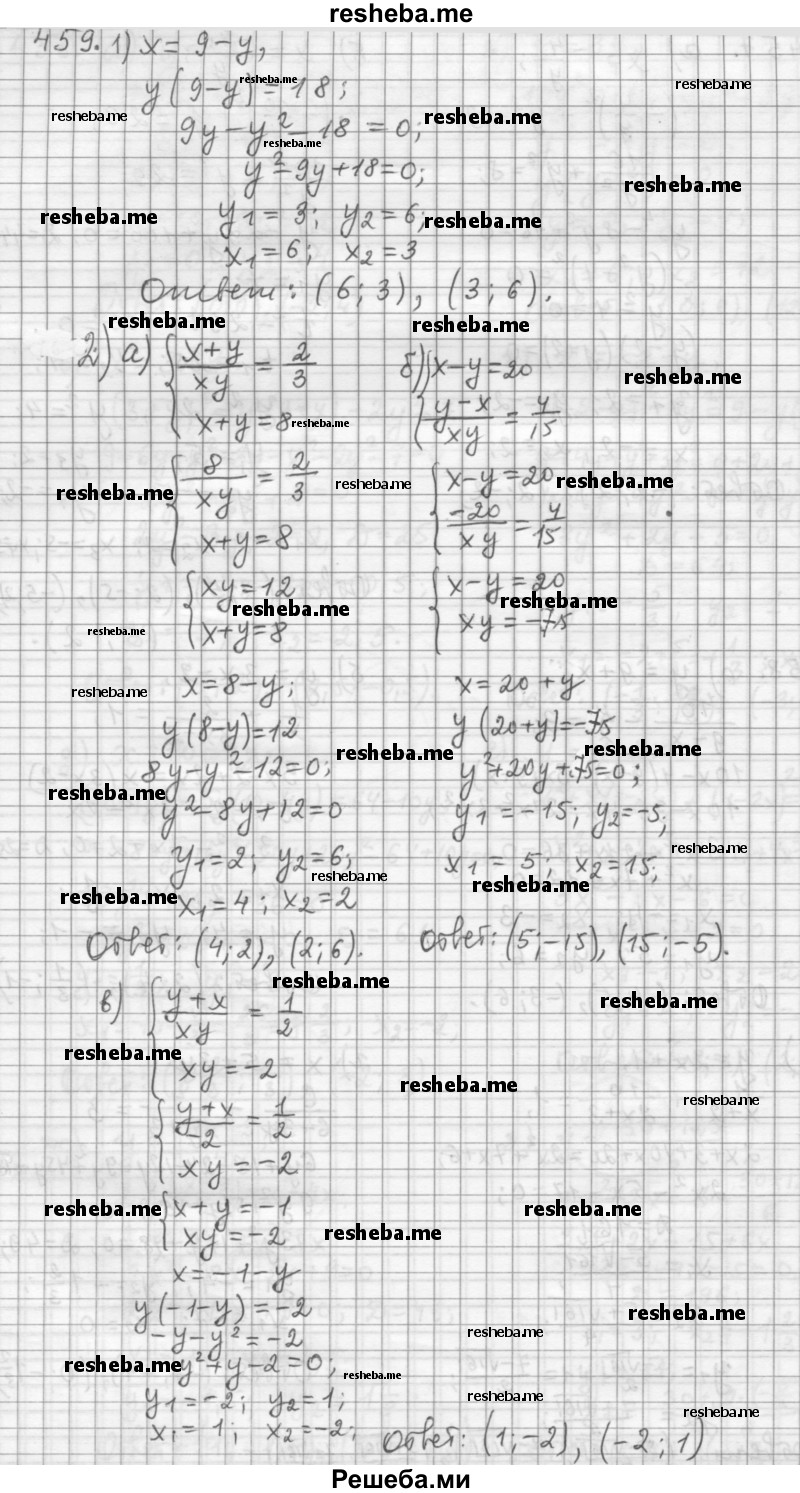 resheba.me
459. 1) x = 9-y,
y(9-y) = 18;
9y-y²-18 = 0;
y²-9y+18=0;
y₁ = 3; y₂ = 6;
x₁ = 6; x₂ = 3
Ответ: (6; 3), (3; 6).
2) а) { (x+y)/(xy) = 2/3
x+y=8
{ 8/(xy) = 2/3
x+y=8
{ xy=12
x+y=8
x=8-y;
y(8-y)=12
8y-y²-12=0;
y²-8y+12=0
y₁=2; y₂=6;
x₁=4; x₂=2
Ответ: (4; 2), (2; 6).
б) { x-y=20
(y-x)/(xy) = 4/15
{ x-y=20
-20/(xy) = 4/15
{ x-y=20
xy=-75
x=20+y
y(20+y)=-75
y²+20y+75=0;
y₁=-15; y₂=-5;
x₁=5; x₂=15;
Ответ: (5; -15), (15; -5).
в) { (y+x)/(xy) = 1/2
xy=-2
{ (y+x)/(-2) = 1/2
xy=-2
{ x+y=-1
xy=-2
x=-1-y
y(-1-y)=-2
-y-y²=-2
y²+y-2=0;
y₁=-2; y₂=1;
x₁=1; x₂=-2;
Ответ: (1; -2), (-2; 1)
Решеба.ми